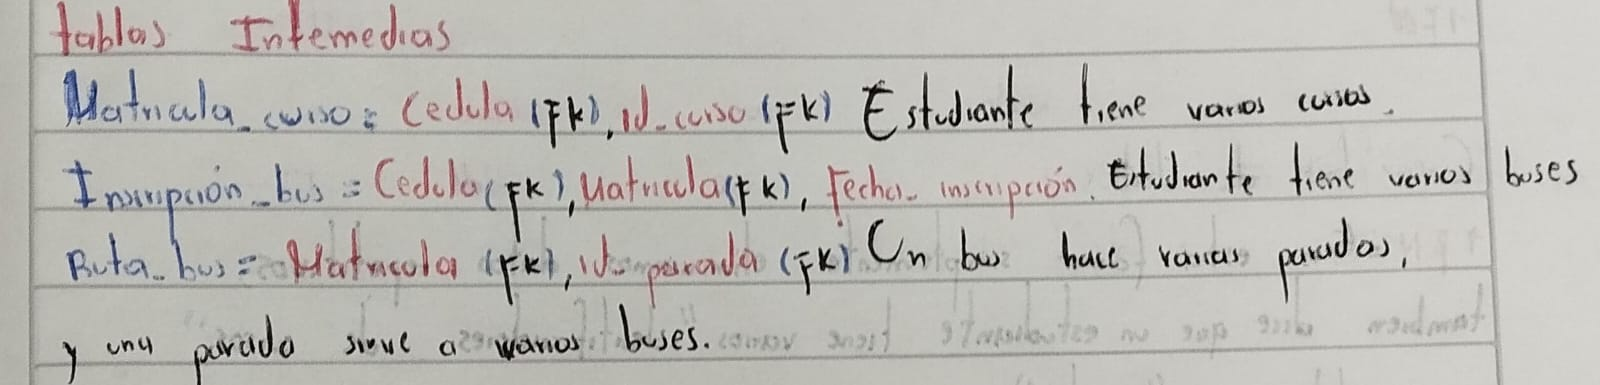 tablas Intemedias
Matricula_curso = Cedula (FK), id_curso (FK) Estudiante tiene varios cursos.
Inscripción_bus = Cedula (FK), Matricula (FK), Fecha_inscripción. Estudiante tiene varios buses
Ruta_bus = Matricula (FK), id_parada (FK) Un bus hace varias paradas,
y una parada sirve a varios buses.